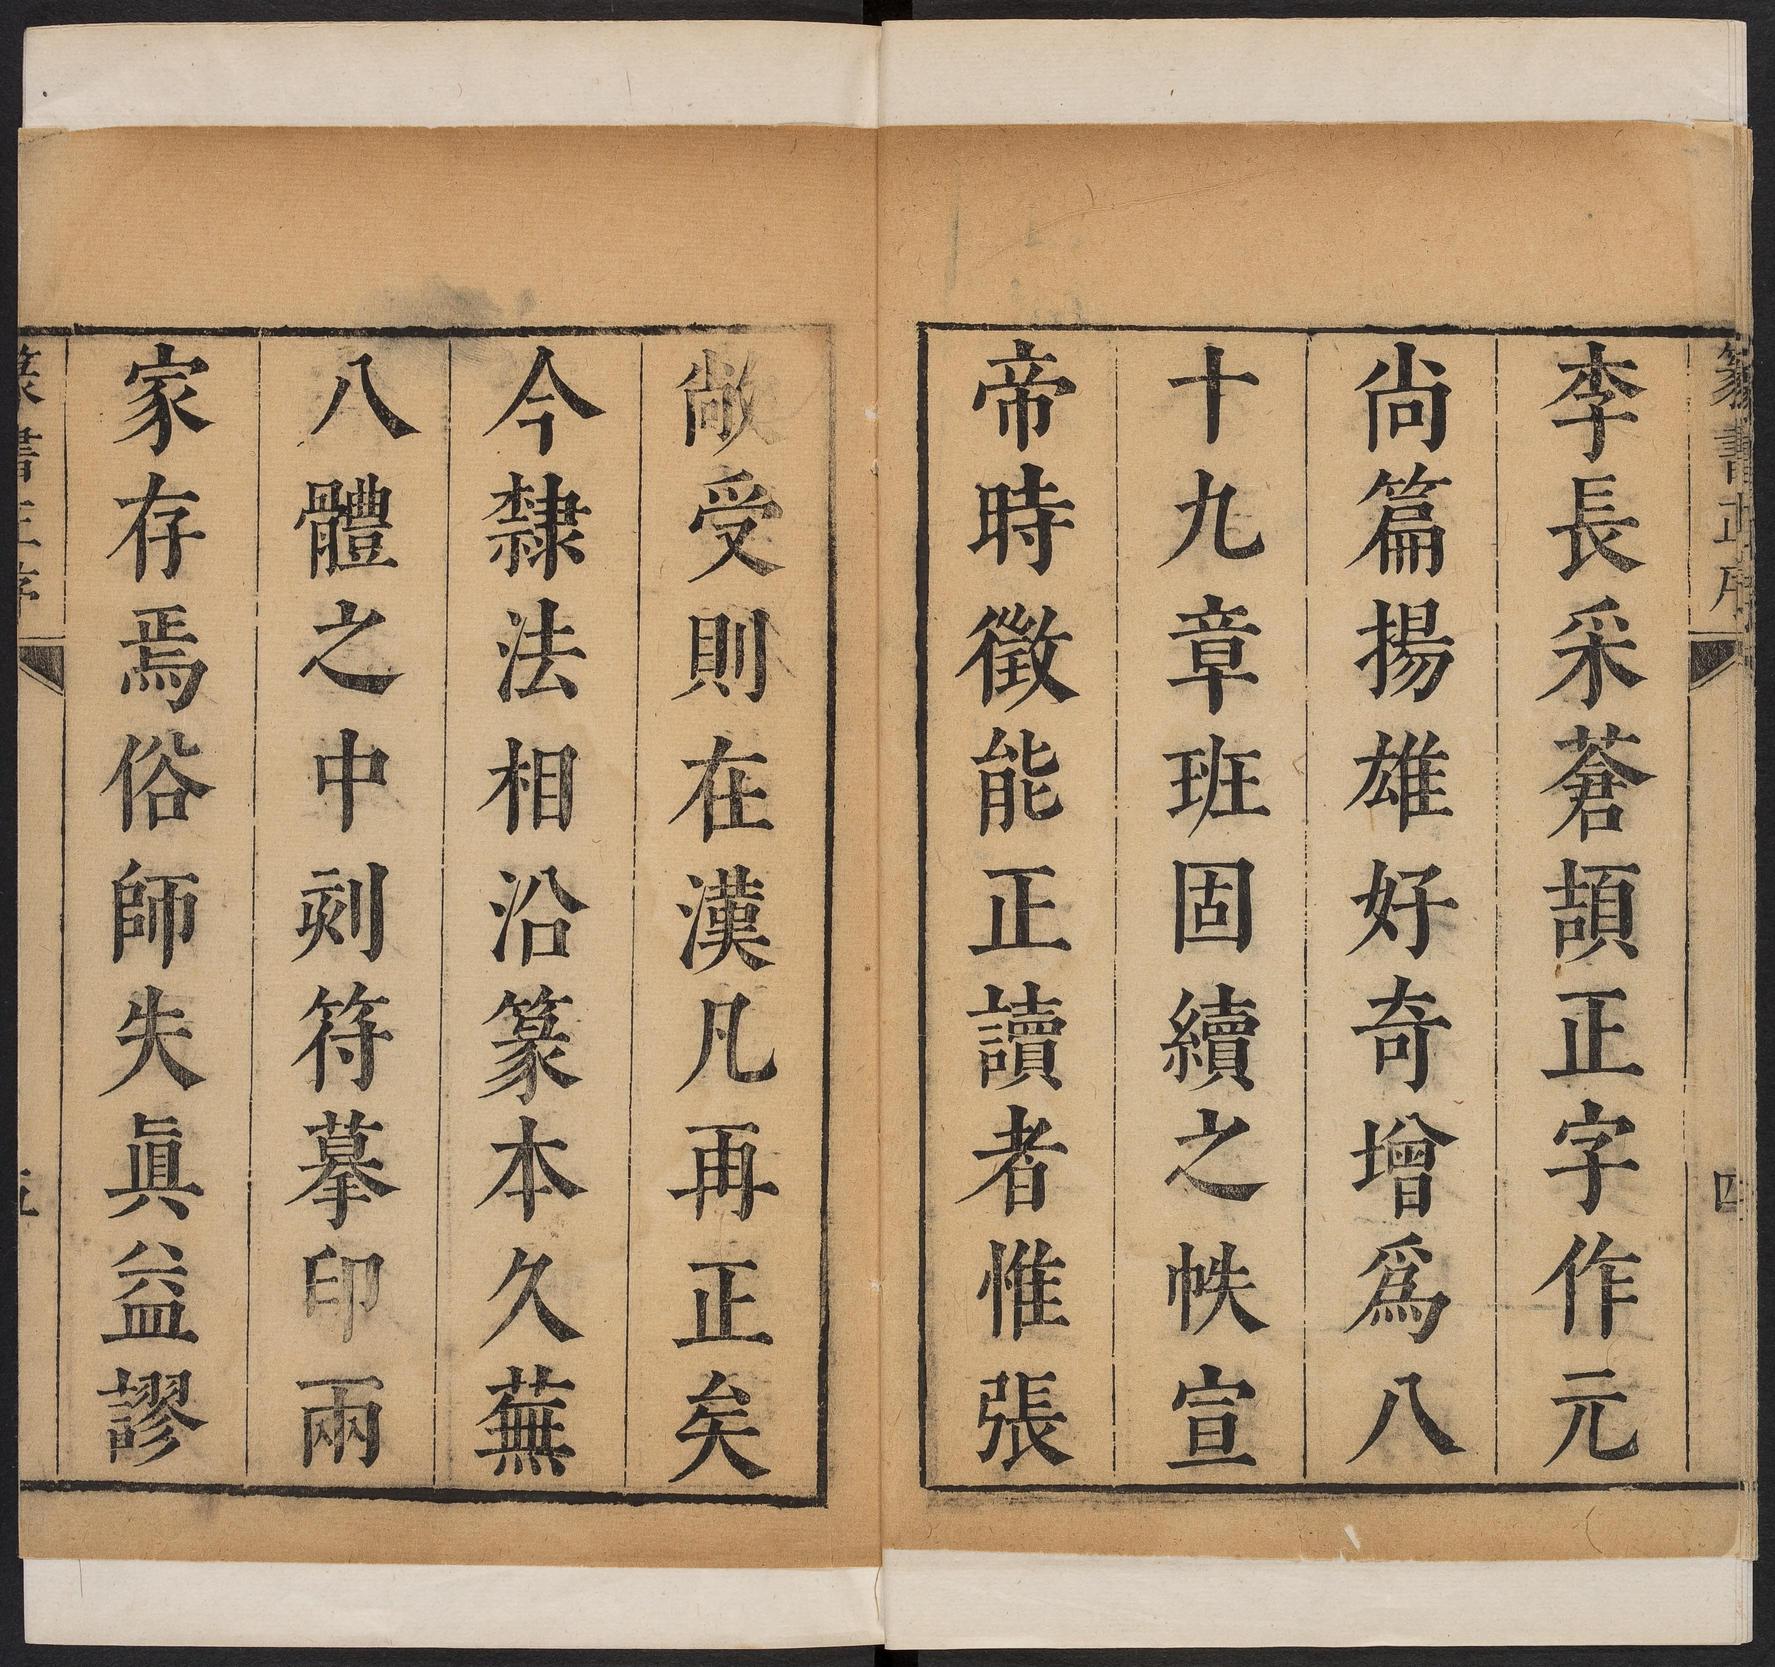 篆書正序
四
李長采蒼頡正字作元
尚篇揚雄好奇增爲八
十九章班固續之帙宣
帝時徵能正讀者惟張
敞受則在漢凡再正矣
今隸法相沿篆本久蕪
八體之中刻符摹印兩
家存焉俗師失眞益謬
篆書正序
五